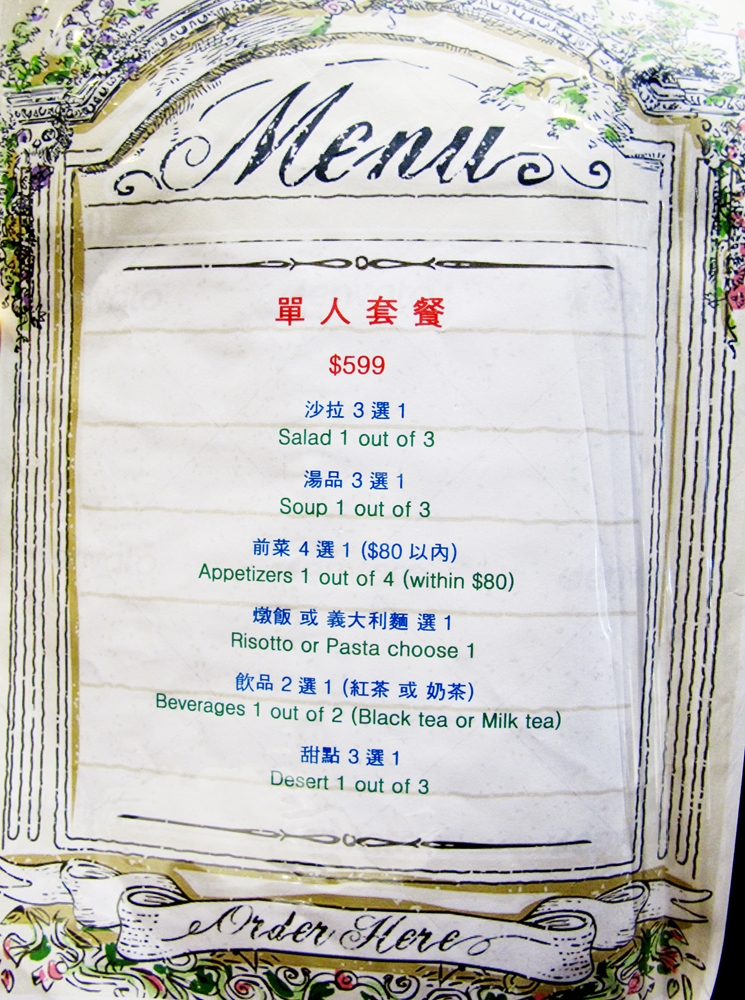 Menu
單人套餐
$599
沙拉 3 選 1
Salad 1 out of 3
湯品 3 選 1
Soup 1 out of 3
前菜 4 選 1 ($80 以內)
Appetizers 1 out of 4 (within $80)
燉飯 或 義大利麵 選 1
Risotto or Pasta choose 1
飲品 2 選 1 (紅茶 或 奶茶)
Beverages 1 out of 2 (Black tea or Milk tea)
甜點 3 選 1
Desert 1 out of 3
Order Here